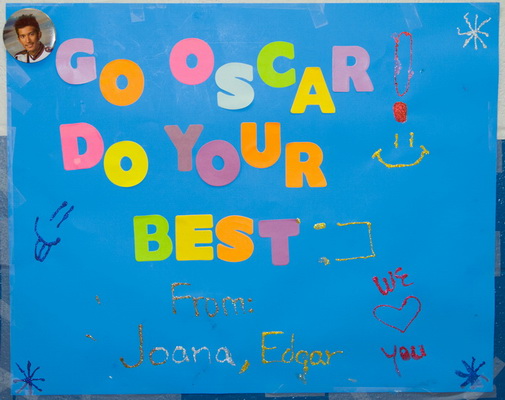 GO OSCAR!
DO YOUR
BEST :]
From:
Joana, Edgar
WE
♡
you